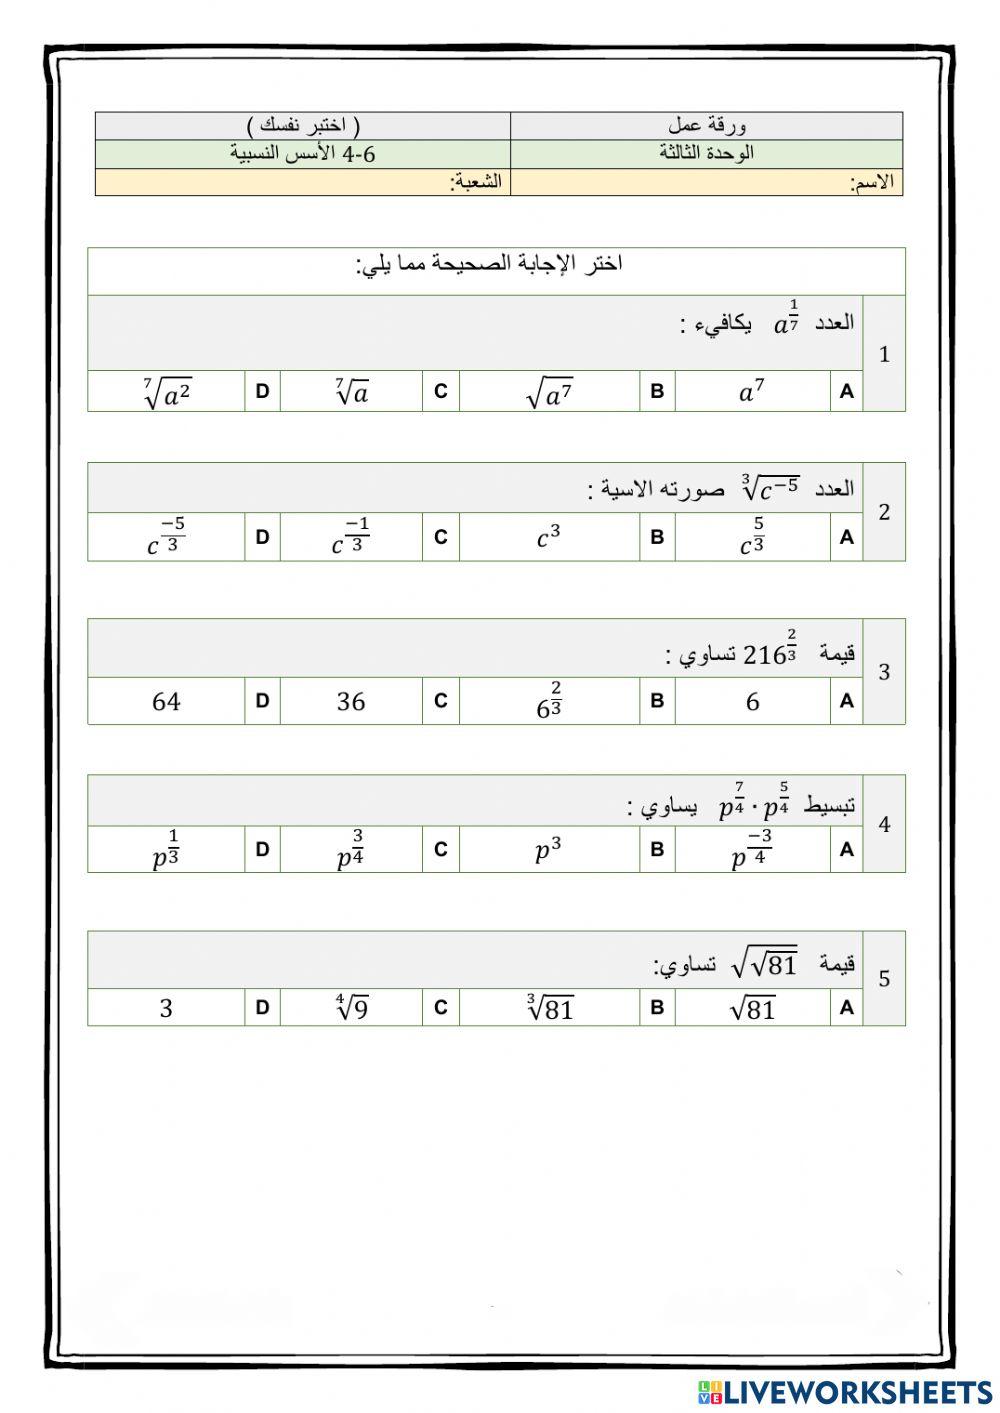 ورقة عمل ( اختبر نفسك )
الوحدة الثالثة 4-6 الأسس النسبية
الاسم: الشعبة:
اختر الإجابة الصحيحة مما يلي:
1 العدد a^{1/7} يكافيء :
A a^7 B √(a^7) C ⁷√a D ⁷√(a^2)
2 العدد ³√(c^{−5}) صورته الاسية :
A c^{5/3} B c^3 C c^{−1/3} D c^{−5/3}
3 قيمة 216^{2/3} تساوي :
A 6 B 6^{2/3} C 36 D 64
4 تبسيط p^{7/4} · p^{5/4} يساوي :
A p^{−3/4} B p^3 C p^{3/4} D p^{1/3}
5 قيمة √(√81) تساوي:
A √81 B ³√81 C ⁴√9 D 3
LIVEWORKSHEETS